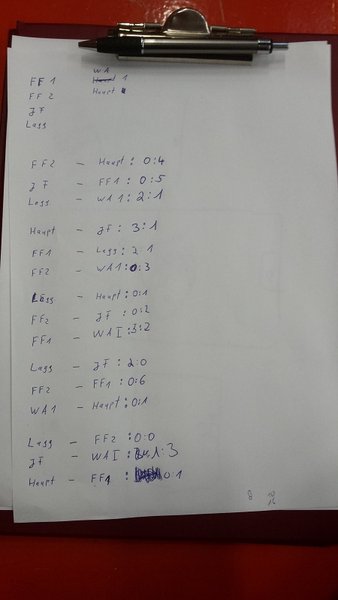 FF1 WA 1
FF2 Haupt
JF
Lagg
FF2 - Haupt : 0:4
JF - FF1 : 0:5
Lagg - WA1 : 2:1
Haupt - JF : 3:1
FF1 - Lagg : 2 1
FF2 - WA1 : 0:3
Lagg - Haupt : 0:1
FF2 - JF : 0:2
FF1 - WA I : 3:2
Lagg - JF : 2:0
FF2 - FF1 : 0:6
WA1 - Haupt : 0:1
Lagg - FF2 : 0:0
JF - WA I : 1:3
Haupt - FF1 : 0:1